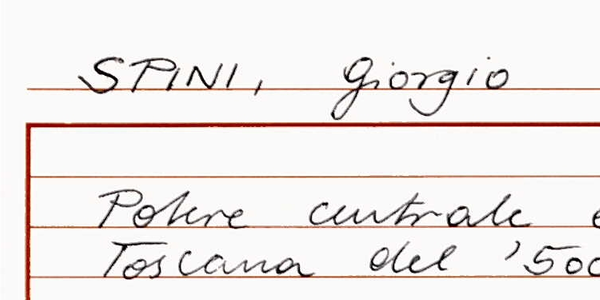 SPINI, Giorgio
Potere centrale e
Toscana del '500